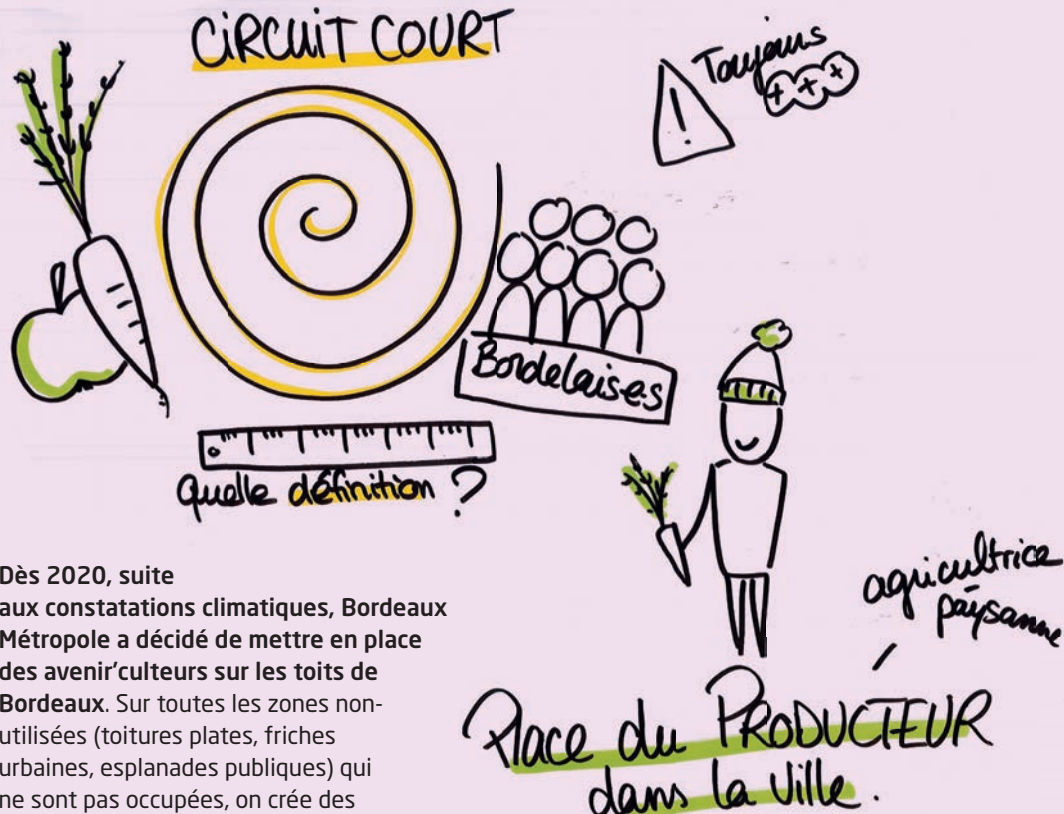 CiRCUiT COURT
Toujours
+ + +
!
Bordelais·e·s
Quelle définition ?
agricultrice
paysanne
Place du PRODUCTEUR
dans la Ville.
Dès 2020, suite
aux constatations climatiques, Bordeaux
Métropole a décidé de mettre en place
des avenir'culteurs sur les toits de
Bordeaux. Sur toutes les zones non-
utilisées (toitures plates, friches
urbaines, esplanades publiques) qui
ne sont pas occupées, on crée des